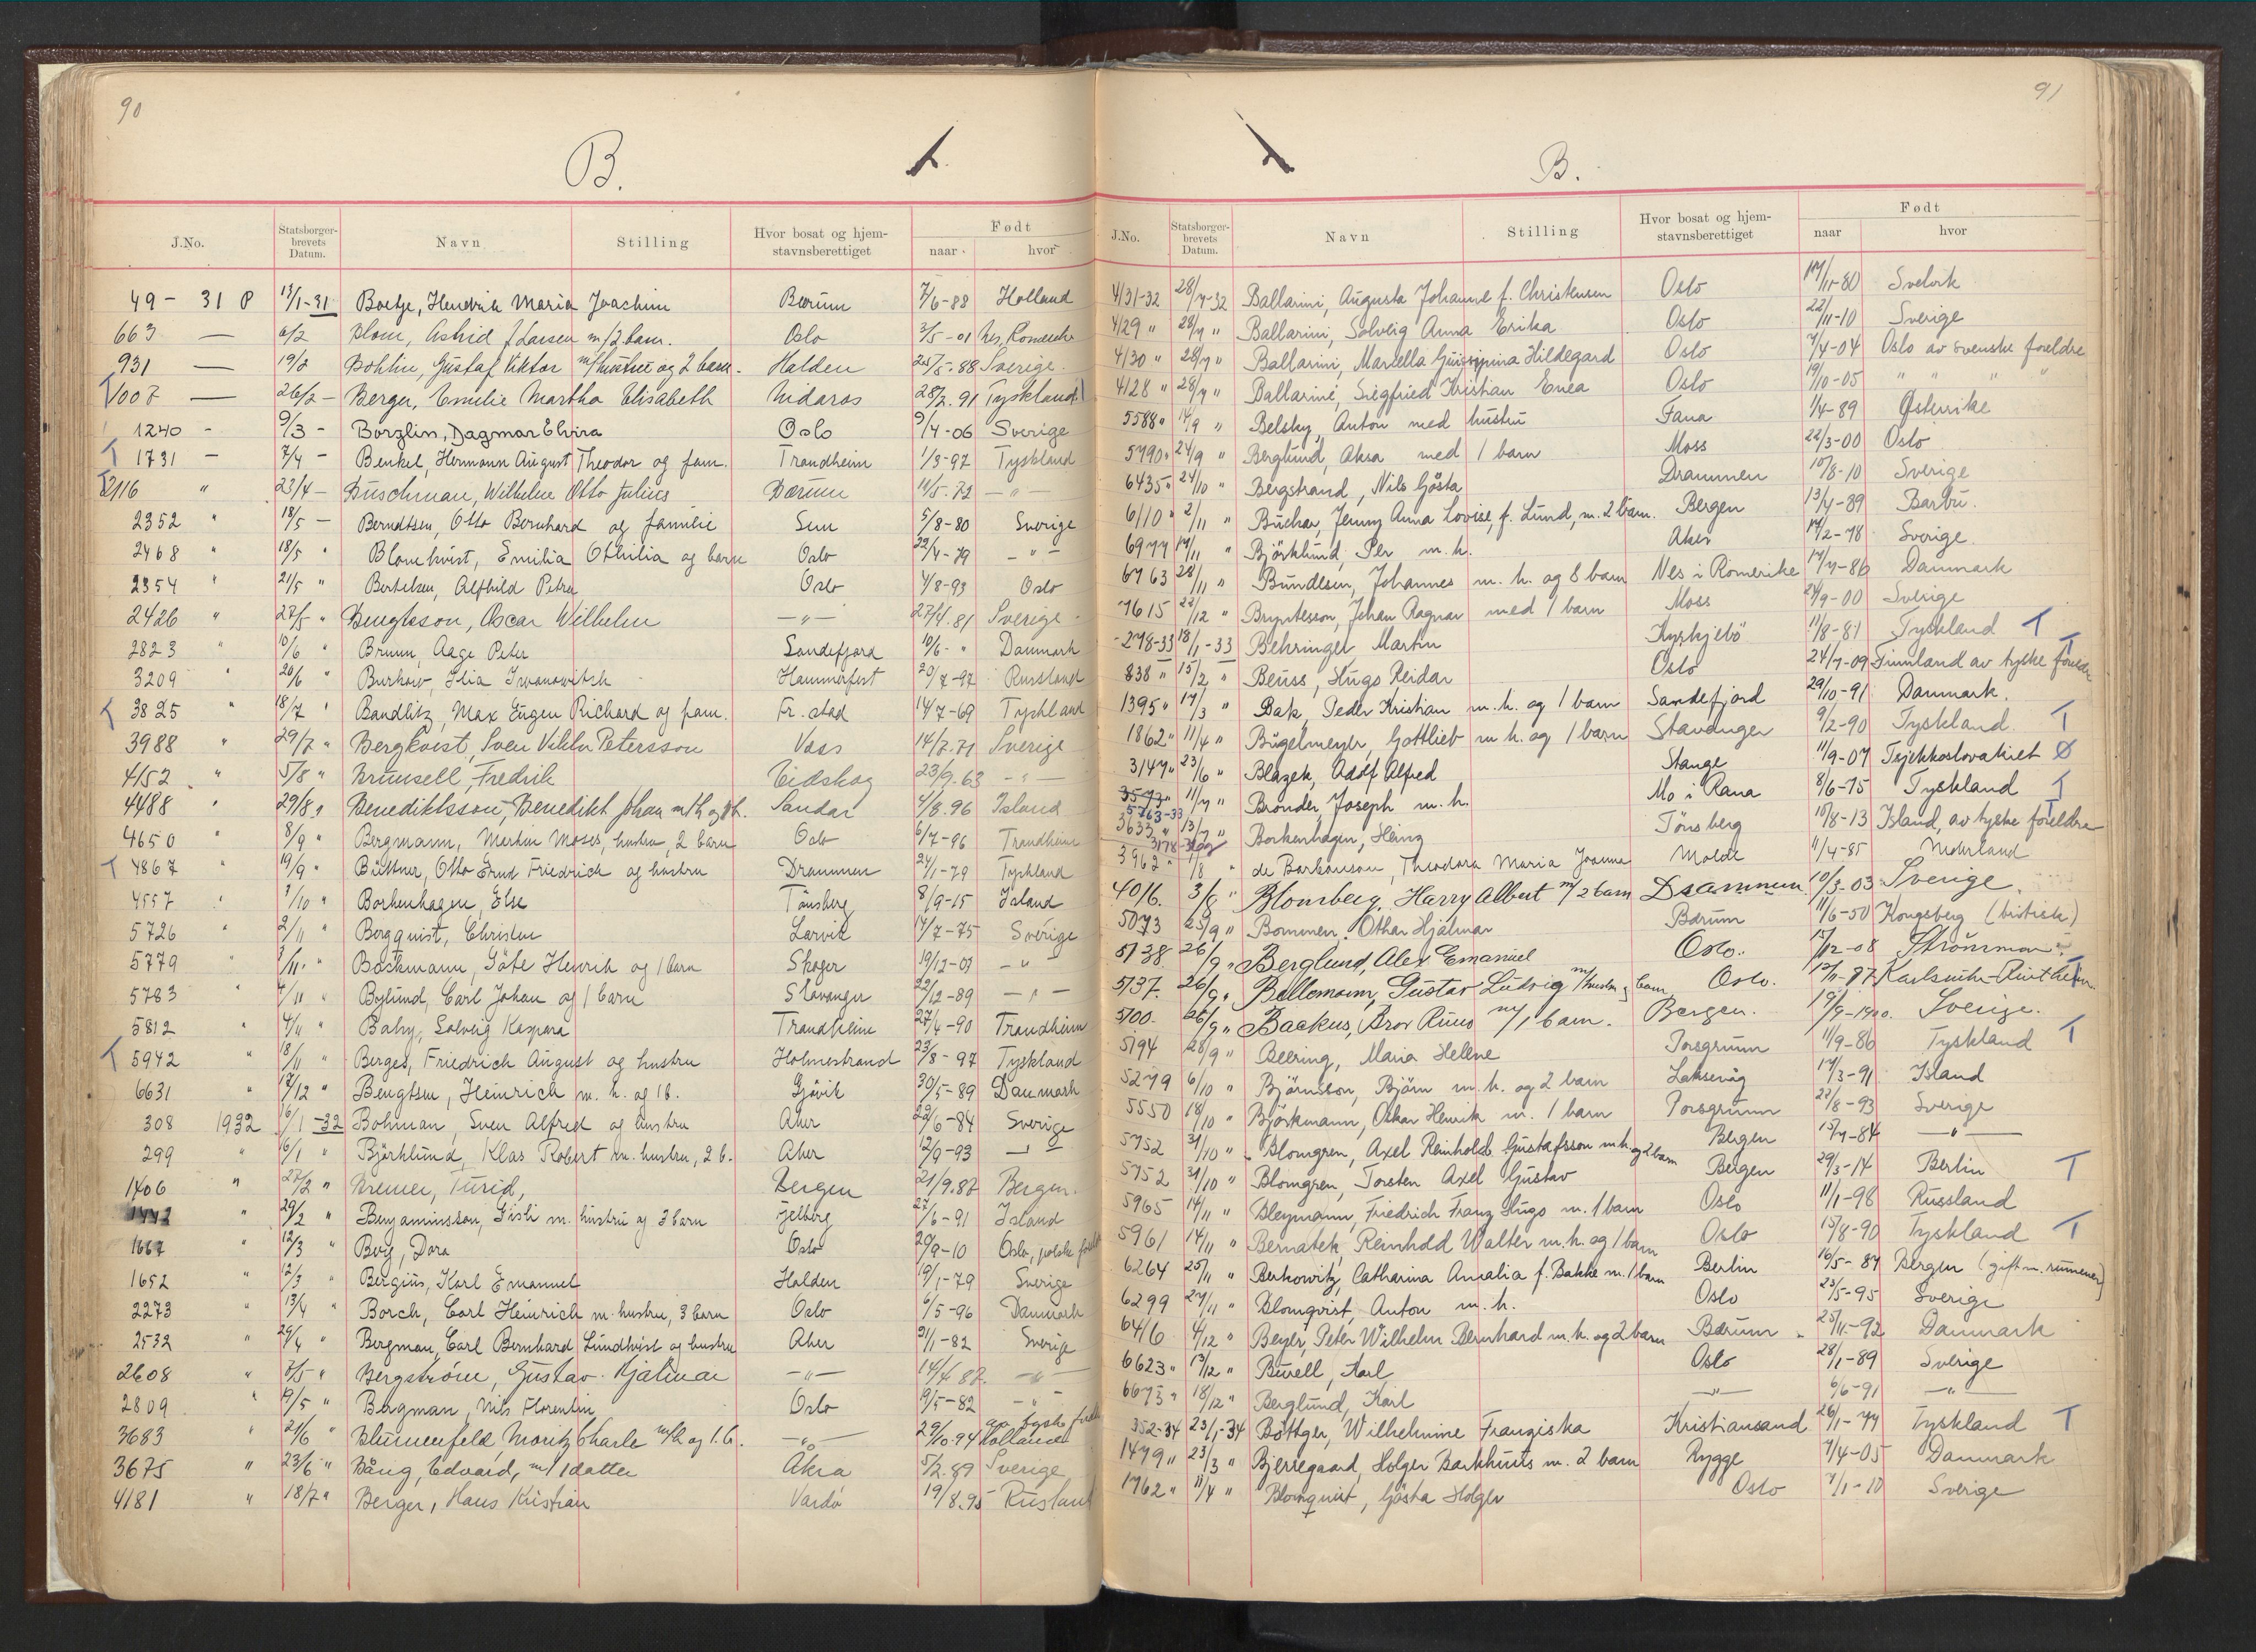 90
B.
J.No. Statsborger-brevets Datum. Navn Stilling Hvor bosat og hjem-stavnsberettiget Født naar hvor
49 - 31 P 13/1-31 Boetje, Hendrik Maria Joachim Bærum 7/6-88 Holland
663 — 6/2 Blom, Astrid f. Larsen m/2 barn. Oslo 3/5-01 Nes, Romerike
931 — 19/2 Bohlin, Gustaf Viktor m/hustru og 2 barn. Halden 25/5-88 Sverige.
T 1007 — 26/2 - Berger, Emilie Martha Elisabeth Nidaros 28/2.91 Tyskland
1240 - 9/3 - Borzlin, Dagmar Elvira Oslo 9/4-06 Sverige
T 1731 - 7/4 - Benkel, Hermann August Theodor og fam. Trondheim 1/3-97 Tyskland
2116 " 23/4 - Buschman, Wilhelm Otto Julius Bærum 11/5-72 - " -
2352 " 18/5 - Berndtsen, Otto Bernhard og familie Sem 5/8-80 Sverige
2468 " 18/5 " Blomkvist, Emilia Othilia og barn Oslo 22/4-79 - " -
2354 " 21/5 " Bertelsen, Alfhild Petra Oslo 4/8-93 Oslo
2426 " 27/5 " Bengtsson, Oscar Wilhelm - " - 27/4.81 Sverige
2823 " 10/6 " Bruun, Aage Peter Sandefjord 10/6- " Danmark
3209 " 20/6 " Burkow, Ilia Iwanowitch Hammerfest 20/7-97 Russland
T 3825 " 18/7 " Bandlitz, Max Eugen Richard og fam. Fr.stad 14/7-69 Tyskland
3988 " 29/7 " Bergkvist, Sven Viktor Petersson Voss 14/7.71 Sverige
4152 " 5/8 " Brunsell, Fredrik Eidskog 23/9.63 - " -
4488 " 29/8 " Benediktsson, Benedikt Johan m/h og 8 b. Sandar 4/8.96 Island
4650 " 8/9 " Bergmann, Martin Moses, hustru, 2 barn Oslo 6/7-96 Trondheim
T 4867 " 19/9 " Büttner, Otto Ernst Friedrich og hustru Drammen 24/1-79 Tyskland
4557 " 1/10 " Borkenhagen, Else Tønsberg 8/9-15 Island
5726 " 2/11 " Bergquist, Christen Larvik 14/7-75 Sverige
5779 " 3/11 " Bäckmann, Göte Henrik og 1 barn Skoger 19/12-07 - " -
5783 " 4/11 " Bylund, Carl Johan og 1 barn Stavanger 22/12-89 - " -
5812 " 4/11 " Bahy, Solveig Kaspara Trondheim 27/4-90 Trondheim
T 5942 " 18/11 " Berges, Friedrich August og hustru Holmestrand 23/8-97 Tyskland
6631 " 17/12 " Bengtsen, Heinrich m. h. og 1 b. Gjøvik 30/5-89 Danmark
308 1932 16/1 -32 Bohman, Sven Alfred og hustru Aker 22/6-84 Sverige
299 " 16/1 " Björklund, Klas Robert m. hustru, 2 b. Aker 12/9-93 - " -
1406 " 27/2 " Bremer, Turid, Bergen 21/9.87 Bergen.
" 29/2 " Benjaminsson, Gisli m. hustru og 3 barn Jelberg 27/6-91 Island
1667 " 12/3 " Berg, Dora Oslo 20/9-10 Oslo, polske
1652 " 12/3 " Bergius, Karl Emanuel Halden 19/1-79 Sverige
2273 " 13/4 " Borch, Carl Heinrich m. hustru, 3 barn Oslo 6/5-96 Danmark
2532 " 29/4 " Bergman, Carl Bernhard Lundkvist og hustru Aker 21/1-82 Sverige
2608 " 7/5 " Bergström, Gustav Hjalmar - " - 14/4.87. - " -
2809 " 19/5 " Bergman, Nils Florentin Oslo 19/5-82 - " -
3683 " 21/6 " Blumenfeld, Moritz Charle m/h og 1.b. - " - 29/10-94 Holland av tyske
3675 " 23/6 " Bång, Edvard, m/1 datter Åkra 5/2.89 Sverige
4181 " 18/7 " Berger, Hans Kristian Vardø 19/8.95 Russland
91
B.
J.No. Statsborger-brevets Datum. Navn Stilling Hvor bosat og hjem-stavnsberettiget Født naar hvor
4131-32 28/7-32 Ballarini, Augusta Johanne f. Christensen Oslo 17/11-80 Svelvik
4129 " 28/7 " Ballarini, Solveig Anna Erika Oslo 22/11-10 Sverige
4130 " 28/7 " Ballarini, Marcella Guiseppina Hildegard Oslo 7/4-04 Oslo av svenske foreldre
4128 " 28/7 " Ballarini, Siegfried Kristian Enea Oslo 19/10-05 " " " "
5588 " 14/9 " Belsky, Anton med hustru Fana 1/4-89 Østerrike
5790 " 24/9 " Berglund, Aksa med 1 barn Moss 22/3-00 Oslo
6435 " 24/10 " Bergstrand, Nils Gösta Drammen 10/8-10 Sverige
6110 " 2/11 " Buchar, Jenny Anna Lovise, f. Lund, m. 2 barn. Bergen 13/4-89 Barbu.
6977 17/11 " Björklund, Per m. h. Aker 14/2-78 Sverige
6763 28/11 " Bundesen, Johannes m. h. og 8 barn Nes i Romerike 17/7-86 Danmark
7615 22/12 " Bryntesson, Johan Ragnar med 1 barn Moss 24/9-00 Sverige
278-33 18/1-33 Behringer Martin Kyrkjebö 11/8-81 Tyskland T
838 " 15/2 " Beuss, Hugo Reidar Oslo 24/7-09 Finnland av tyske foreldre T
1395 " 17/3 " Bak, Peder Kristian m. h. og 1 barn Sandefjord 29/10-91 Danmark.
1862 " 11/4 " Bügelmeyer, Gottlieb m h. og 1 barn Stavanger 9/2-90 Tyskland T
3147 " 23/6 " Blazek, Adolf Alfred Stange 11/9-07 Tsjekkoslovakiet Ø
3573 " 11/7 " Bronder, Joseph m. h. Mo i Rana 8/6-75 Tyskland T
5763-33
3633 " 13/7 " Borkenhagen, Heinz Tönsberg 10/8-13 Island, av tyske foreldre T
3962 " 1/8 " de Barbanson, Theodora Maria Joanna Molde 11/4-85 Nederland
4016. 3/8 " Blomberg, Harry Albert m/2 barn Drammen 10/3-03 Sverige.
5073 23/9 " Bommen, Othar Hjalmar Bærum 11/6-50 Kongsberg (britisk)
5138 26/9 " Berglund, Alex Emanuel Oslo. 15/12-08 Strömmen.
5137. 26/9 " Bellemann, Gustav Ludvig m/hustru og barn Oslo. 12/11-87 Karlsruhe-Rintheim. T
5100. 26/9 " Backus, Bror Rune m/1 barn. Bergen. 19/9-1900. Sverige.
5194 28/9 " Beering, Maria Helene Porsgrunn 11/9-86 Tyskland T
5279 6/10 " Björnsson, Björn m. h. og 2 barn Laksevåg 17/3-91 Island
5550 18/10 " Björkmann, Oskar Henrik m. 1 barn Porsgrunn 22/8-93 Sverige
5752 31/10 " Blomgren, Axel Reinhold Gustafsson m h og 2 barn Bergen 15/7-84 - " -
5752 31/10 " Blomgren, Torsten Axel Gustav Bergen 29/3-14 Berlin T
5965 14/11 " Bleymann, Friedrich Franz Hugo m. 1 barn Oslo 11/1-98 Russland
5961 14/11 " Bernatek, Reinhold Walter m. h. og 1 barn Oslo 15/8-90 Tyskland T
6264 25/11 " Berkowitz, Catharina Amalia f. Bakke m. 1 barn Berlin 16/5-87 Bergen (gift m. rumener)
6299 27/11 " Blomqvist, Anton m. h. Oslo 23/5-95 Sverige
6416 4/12 " Beyer, Peter Wilhelm Bernhard m. h. og 2 barn Bærum 25/11-92 Danmark
6623 " 13/12 " Burell, Karl Oslo 28/1-89 Sverige
6673 " 18/12 " Berglund, Karl - " - 6/6-91 - " -
352-34 23/1-34 Böttger, Wilhelmine Franziska Kristiansand 26/1-77 Tyskland T
1479 " 23/3 " Bjerregaard, Holger Barkhuus m. 2 barn Rygge 7/4-05 Danmark
1762 " 11/4 " Blomquist, Gösta Holger Oslo 7/1-10 Sverige